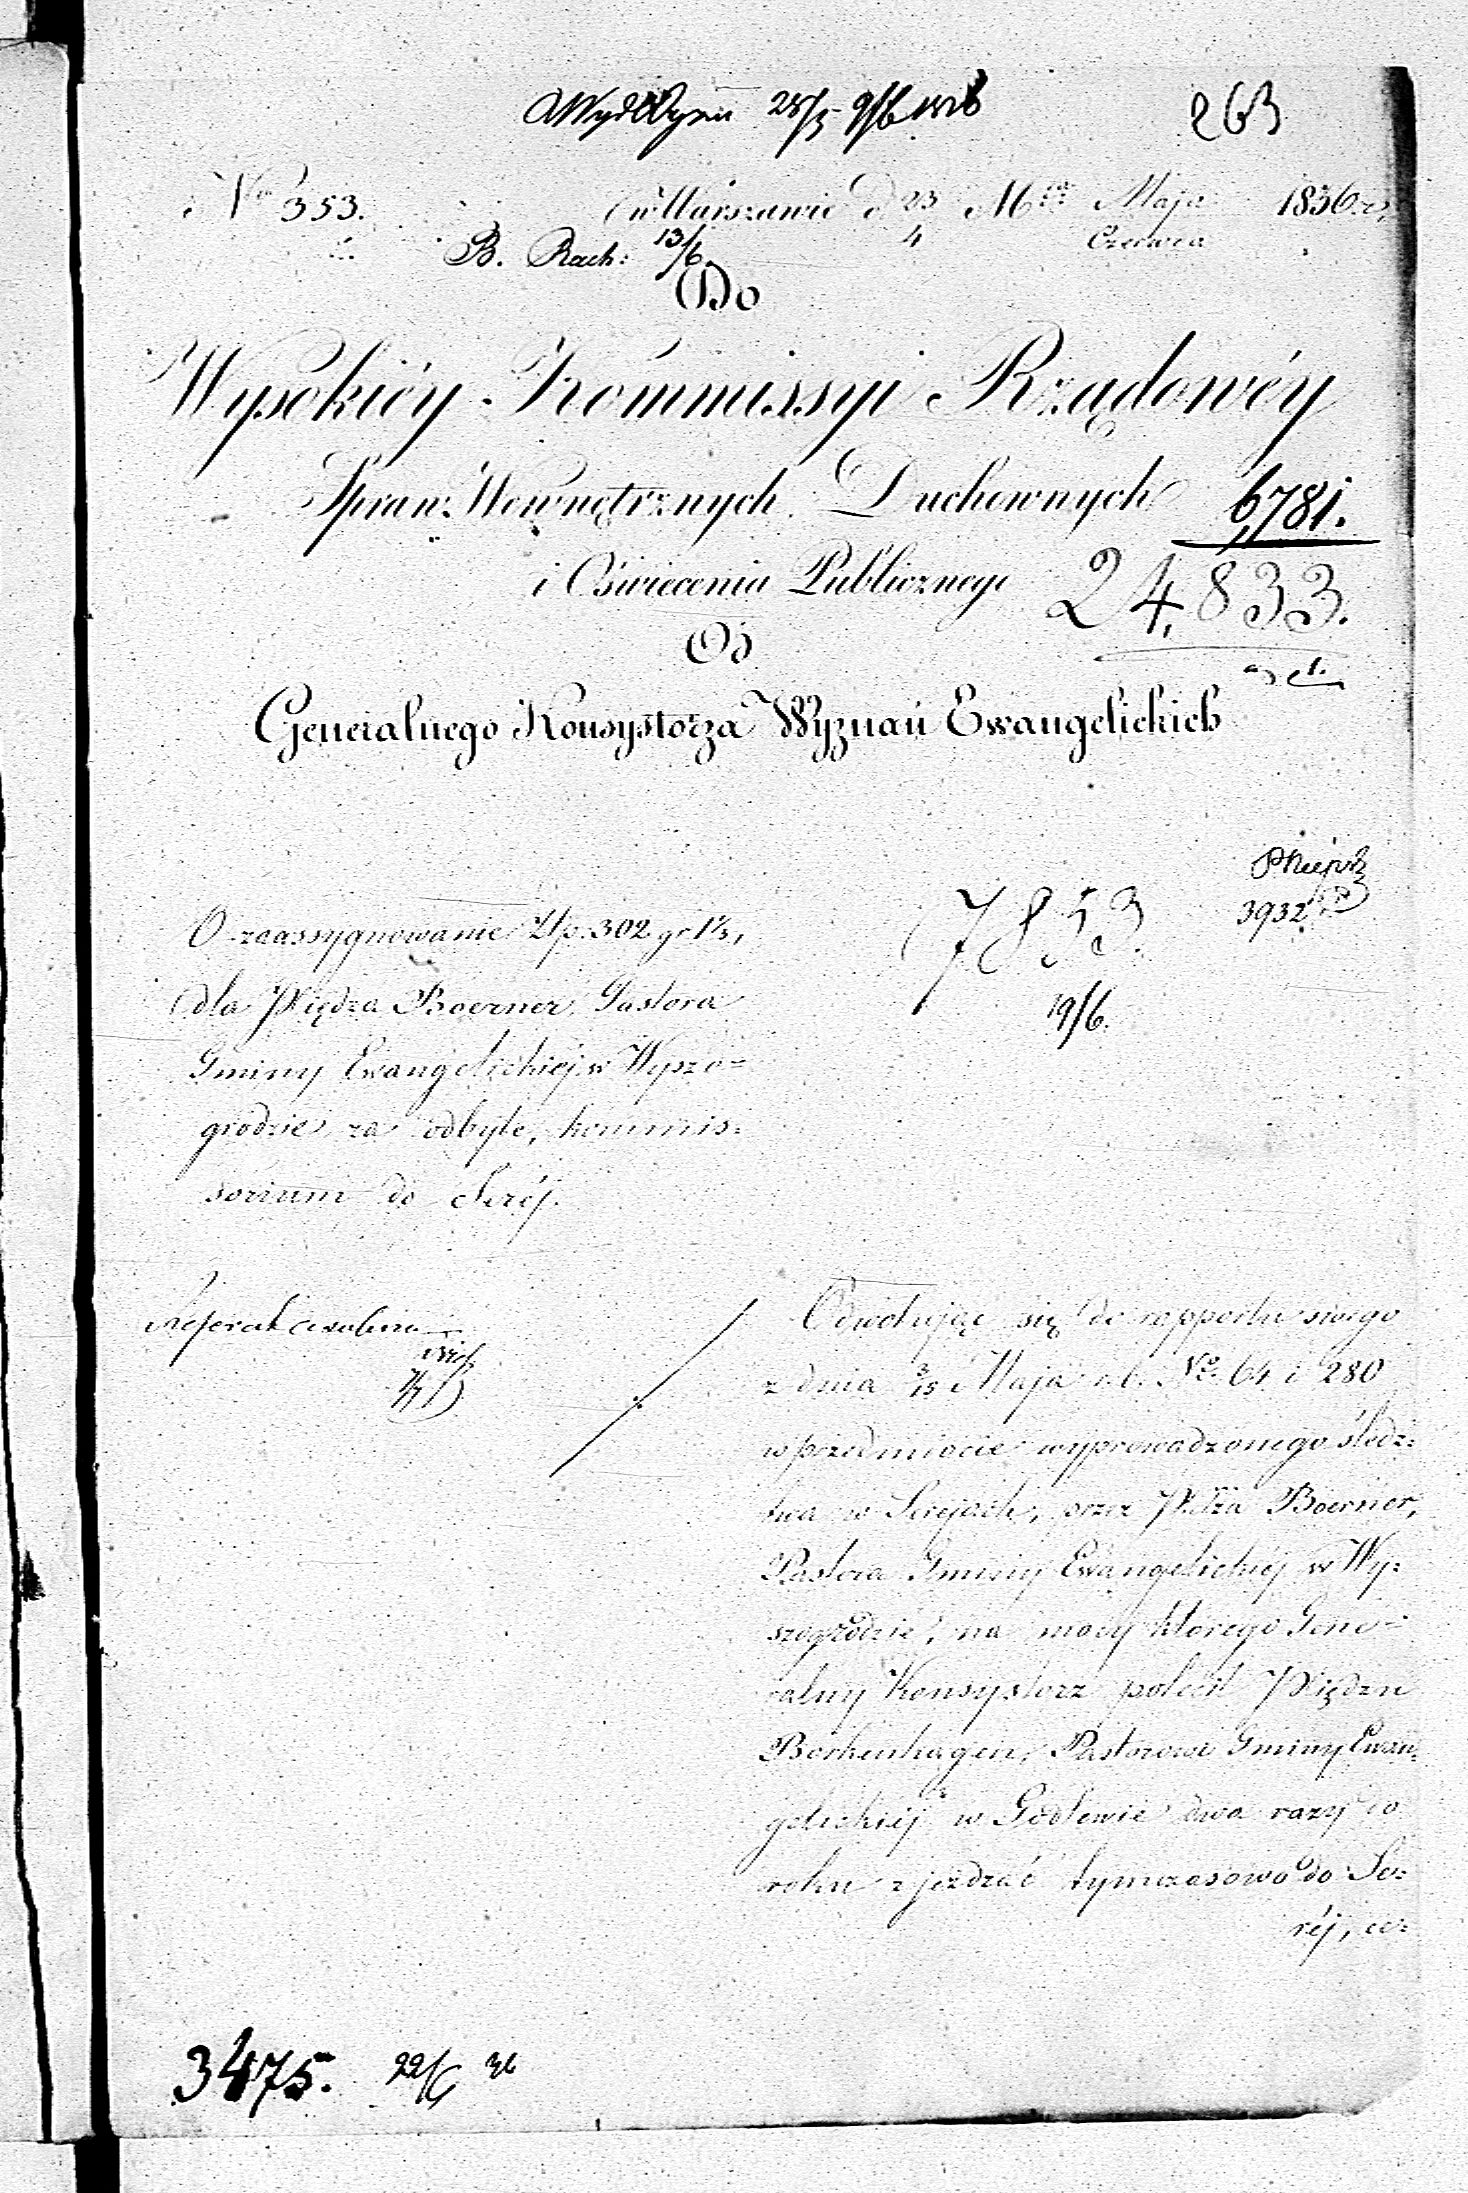 28/5 9/6 1836
263
No 353. w Warszawie d 23 Mca Maja 1836 r.
4 Czerwca
B. Rach: 13/6.
Do
Wysokiéy Kommissyi Rządowéy
Spraw Wewnętrznych Duchownych
6,781.
i Oświecenia Publicznego
24,833.
Od
Generalnego Konsystorza Wyznań Ewangelickich
3932
7853.
19/6.
O zaassygnowanie Złp. 302 gr 1⅓,
dla Xiędza Boerner Pastora
Gminy Ewangelickiej w Wyszo=
grodzie za odbyte, kommis=
sorium do Seréj.
Odwołując się do rapportu swego
z dnia 3/15 Maja r.b. No. 64 i 280
w przedmiocie wyprowadzonego śledz=
twa w Serejach, przez Xdza Boerner,
Pastora Gminy Ewangelickiéj w Wy=
szogrodzie, na mocy którego Gene=
ralny Konsystorz polecił Xiędzu
Bockenhagen, Pastorowi Gminy Ewan=
gelickiéj w Godlewie dwa razy co
roku zjeżdzać tymczasowo do Se=
réj, ce=
3475. 22/6 36